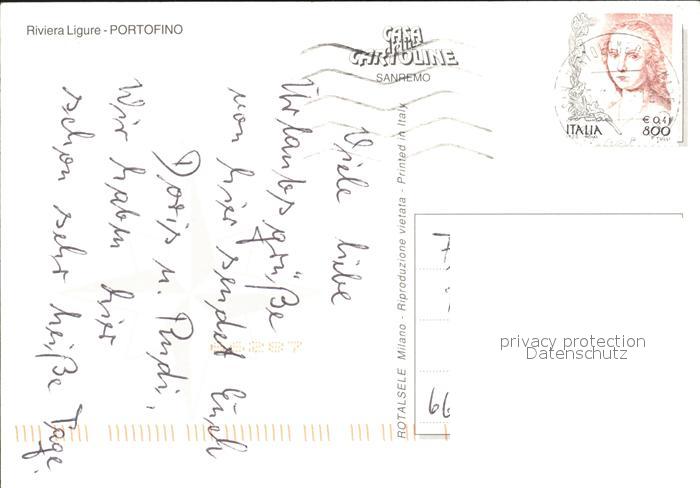 Riviera Ligure - PORTOFINO
CASA
della
CARTOLINE
SANREMO
ITALIA
€ 0,41
800
Viele liebe
Urlaubsgrüße
von hier sendet Euch
Doris u. Rudi.
Wir haben hier
schon sehr heiße Tage.
ROTALSELE Milano - Riproduzione vietata - Printed in Italy
66
privacy protection
Datenschutz